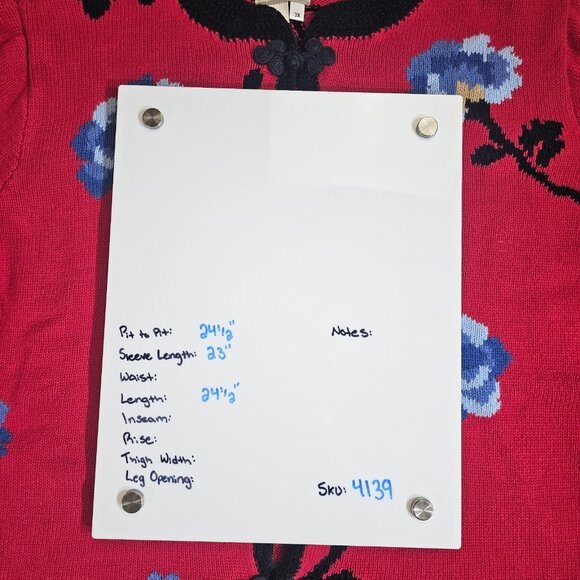 3X
Pit to Pit: 24 1/2"
Notes:
Sleeve Length: 23"
Waist:
Length: 24 1/2"
Inseam:
Rise:
Thigh Width:
Leg Opening:
SKU: 4139